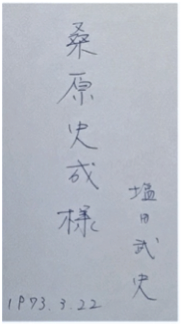 桑原史成様
塩田武史
1973.3.22